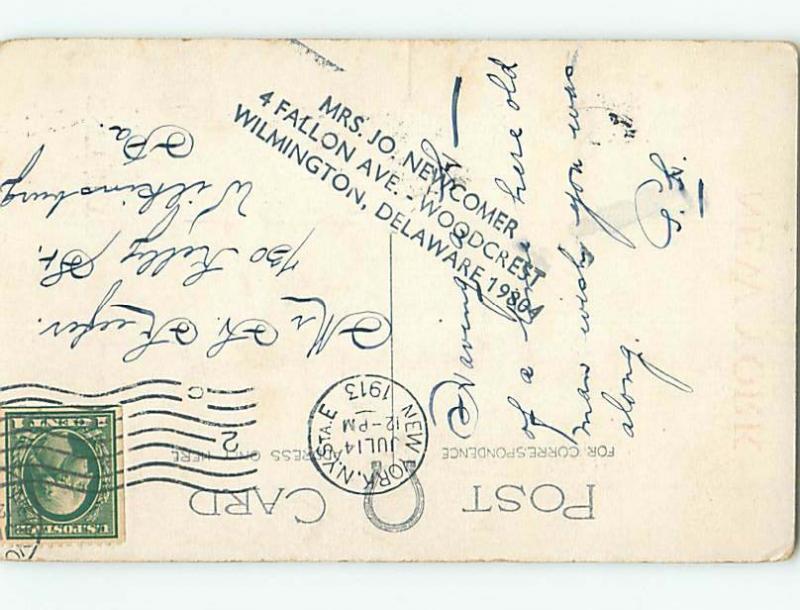 POST CARD
FOR CORRESPONDENCE
ADDRESS ONLY HERE
NEW YORK, N.Y. STA. E
JUL 14
12-PM
1913
2
C
U.S. POSTAGE
Mr. S. Keefer.
730 Kelly St.
Wilkinsburg
Pa.
Having a
of a time here old
man wish you was
along.
S.K.
MRS. JO. NEWCOMER
4 FALLON AVE. - WOODCREST
WILMINGTON, DELAWARE 19804
NEW YORK